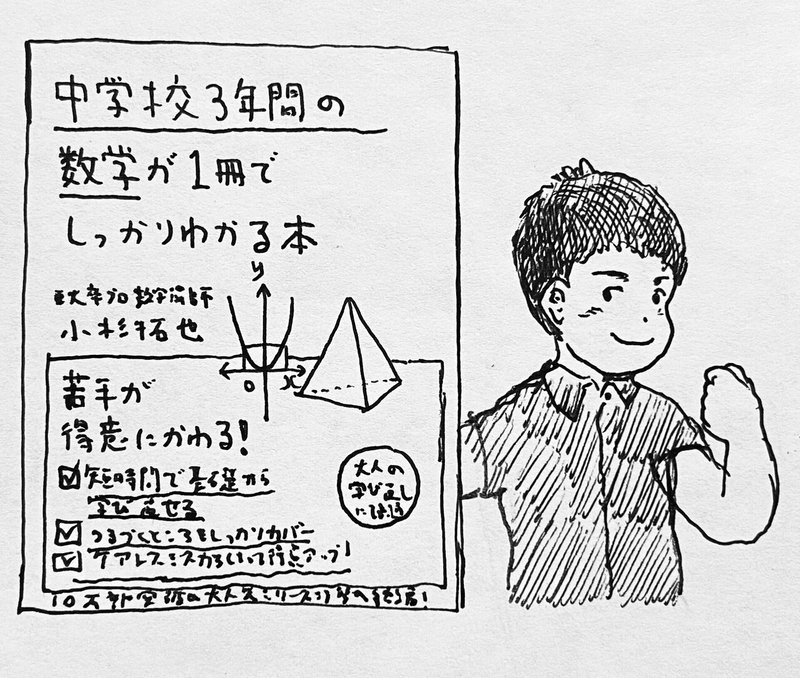 中学校3年間の
数学が1冊で
しっかりわかる本
東大卒プロ数学講師
小杉拓也
y
0 x
苦手が
得意にかわる!
短時間で基礎から
学び直せる
つまづくところをしっかりカバー
ケアレスミス 得点アップ!
大人の
学び直し
に
10万部 の大人気シリーズ